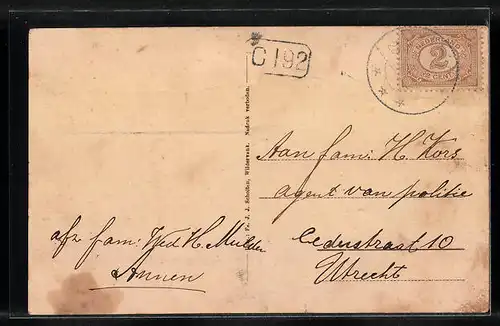 C 192
NEDERLAND
2
CENT
Aan fam: H. Kors
agent van politie
straat 10
Utrecht
afz fam: Wed H. Mulder
Annen
J. J. Scholten, Wildervank. Nadruk verboden.